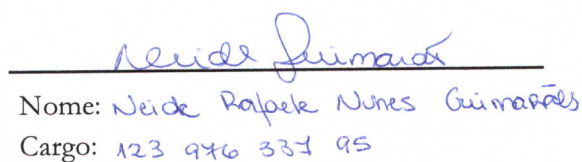 Neide Guimarães
Nome: Neide Rafaele Nunes Guimarães
Cargo: 123 976 337 95